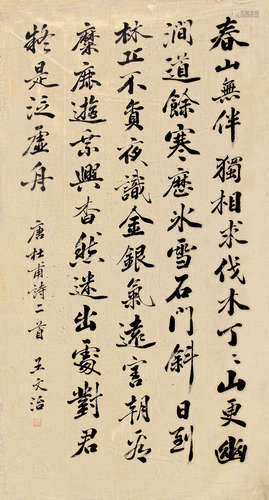 春山無伴獨相求伐木丁丶山更幽
澗道餘寒歷冰雪石門斜日到
林丘不貪夜識金銀氣遠害朝看
麋鹿遊乘興杳然迷出處對君
疑是泛虛舟
唐杜甫詩二首 王文治